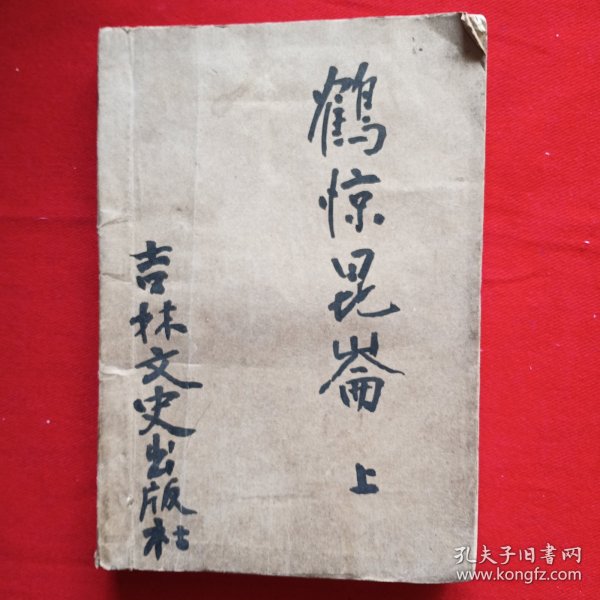 鹤惊昆崙
上
吉林文史出版社
孔夫子旧书网
www.kongfz.com